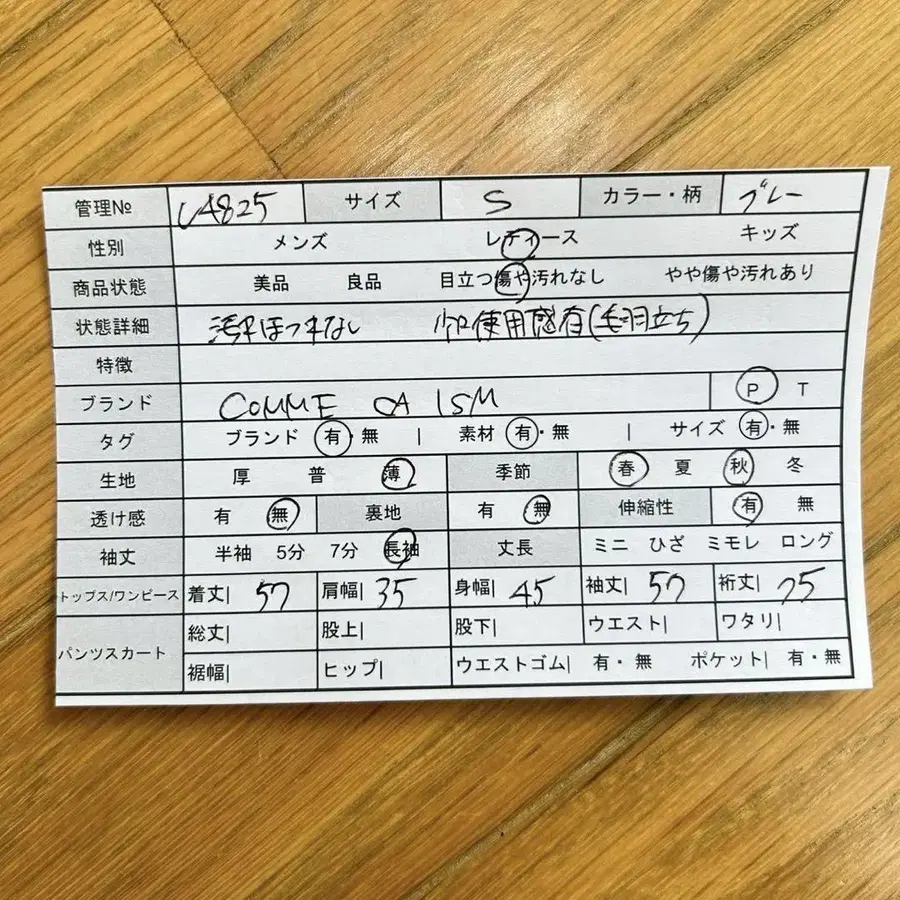 管理№ U4825 サイズ S カラー・柄 グレー
性別 メンズ レディース キッズ
商品状態 美品 良品 目立つ傷や汚れなし やや傷や汚れあり
状態詳細 汚れほつれなし 使用感有(毛羽立ち)
特徴
ブランド COMME CA ISM P T
タグ ブランド 有・無 | 素材 有・無 | サイズ 有・無
生地 厚 普 薄 季節 春 夏 秋 冬
透け感 有 無 裏地 有 無 伸縮性 有 無
袖丈 半袖 5分 7分 長袖 丈長 ミニ ひざ ミモレ ロング
トップス/ワンピース 着丈| 57 肩幅| 35 身幅| 45 袖丈| 57 裄丈| 75
パンツスカート 総丈| 股上| 股下| ウエスト| ワタリ|
裾幅| ヒップ| ウエストゴム| 有・無 ポケット| 有・無